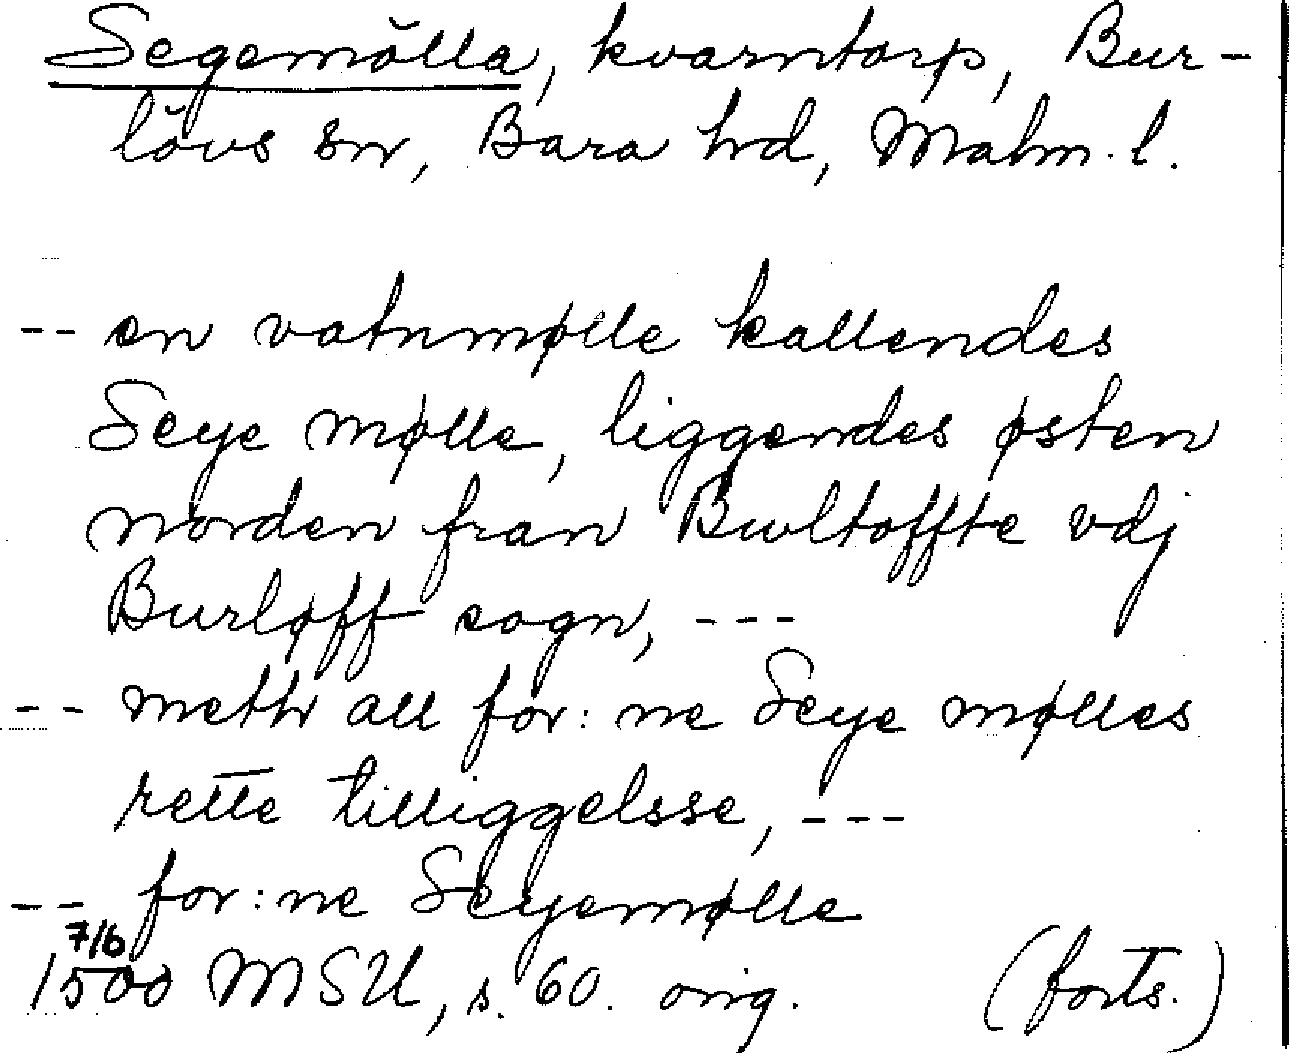 Segemölla, kvarntorp, Bur-
lövs sn, Bara hd, Malm. l.
-- en vatnmølle kallendes
Seye mølle, liggendes østen
norden fran Bwltoffte vdj
Burløff sogn, ---
-- meth all for:ne Seye mølles
rette tilliggelsse, ---
-- for:ne Seyemølle
7/6
1500 MSU, s. 60. orig. (forts.)